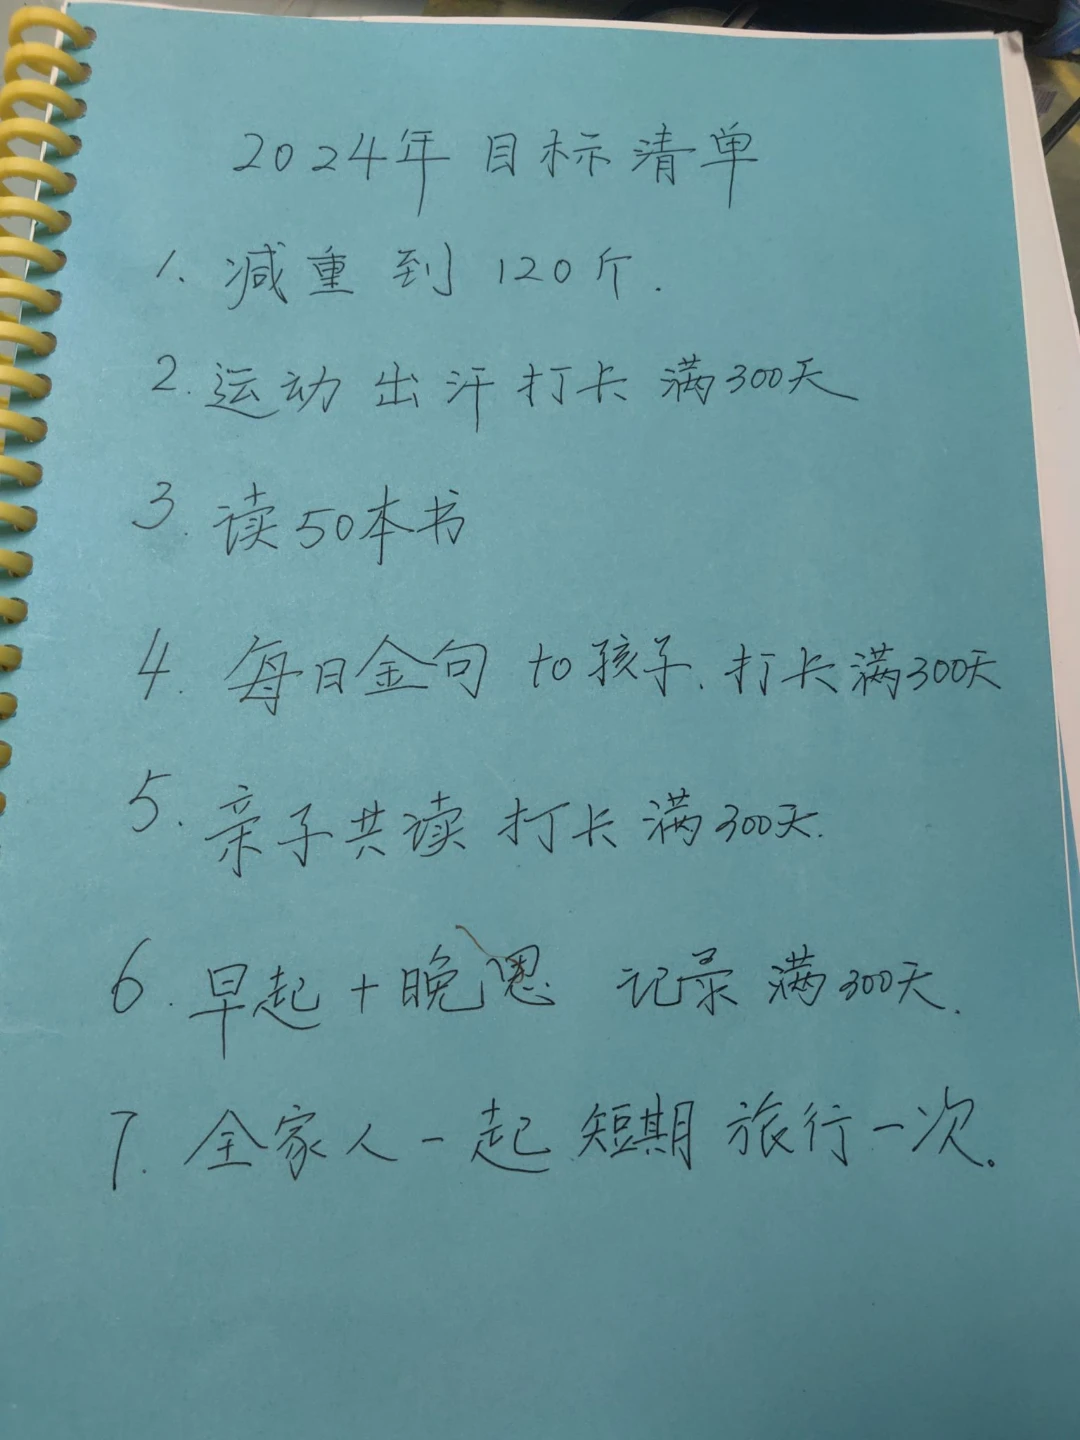 2024年目标清单
1. 减重到120斤.
2. 运动出汗打卡满300天
3. 读50本书
4. 每日金句 to 孩子. 打卡满300天
5. 亲子共读打卡满300天.
6. 早起+晚 记录满300天.
7. 全家人一起短期旅行一次。